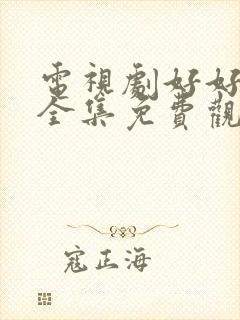 電視劇好好
全集免費觀
寇正海